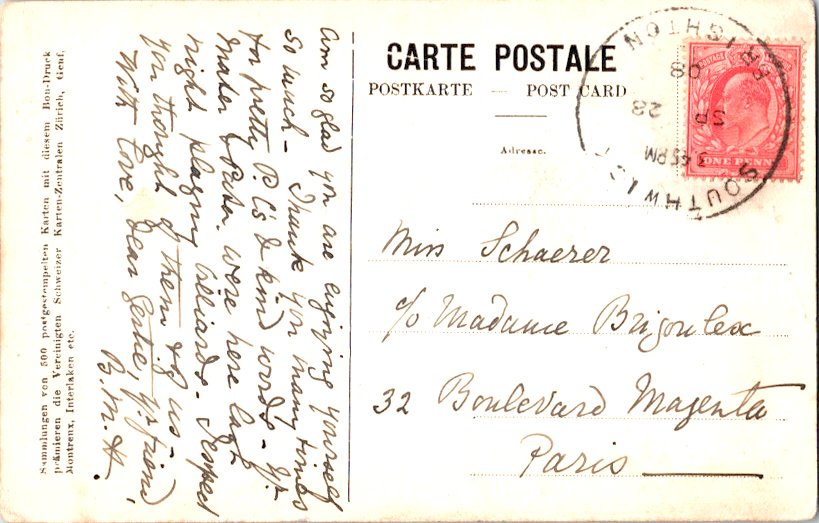 CARTE POSTALE
POSTKARTE — POST CARD
Adresse.
POSTAGE
ONE PENNY
SOUTHWICK
BRIGHTON
3.45 PM
SP 28
08
Miss Schaerer
c/o Madame Brijoulex
32 Boulevard Magenta
Paris
Am so glad you are enjoying yourself
so much — Thank you many times
for pretty P. C's & kind words — Yr
Mater & Pater were here last
night playing billiards.
you thought of them & of us —
With love, dear Gertie, yr friend
B. M. H.
Sammlungen von 500 postgestempelten Karten mit diesem Bon-Druck
prämieren die Vereinigten Schweizer Karten-Zentralen Zürich, Genf,
Montreux, Interlaken etc.